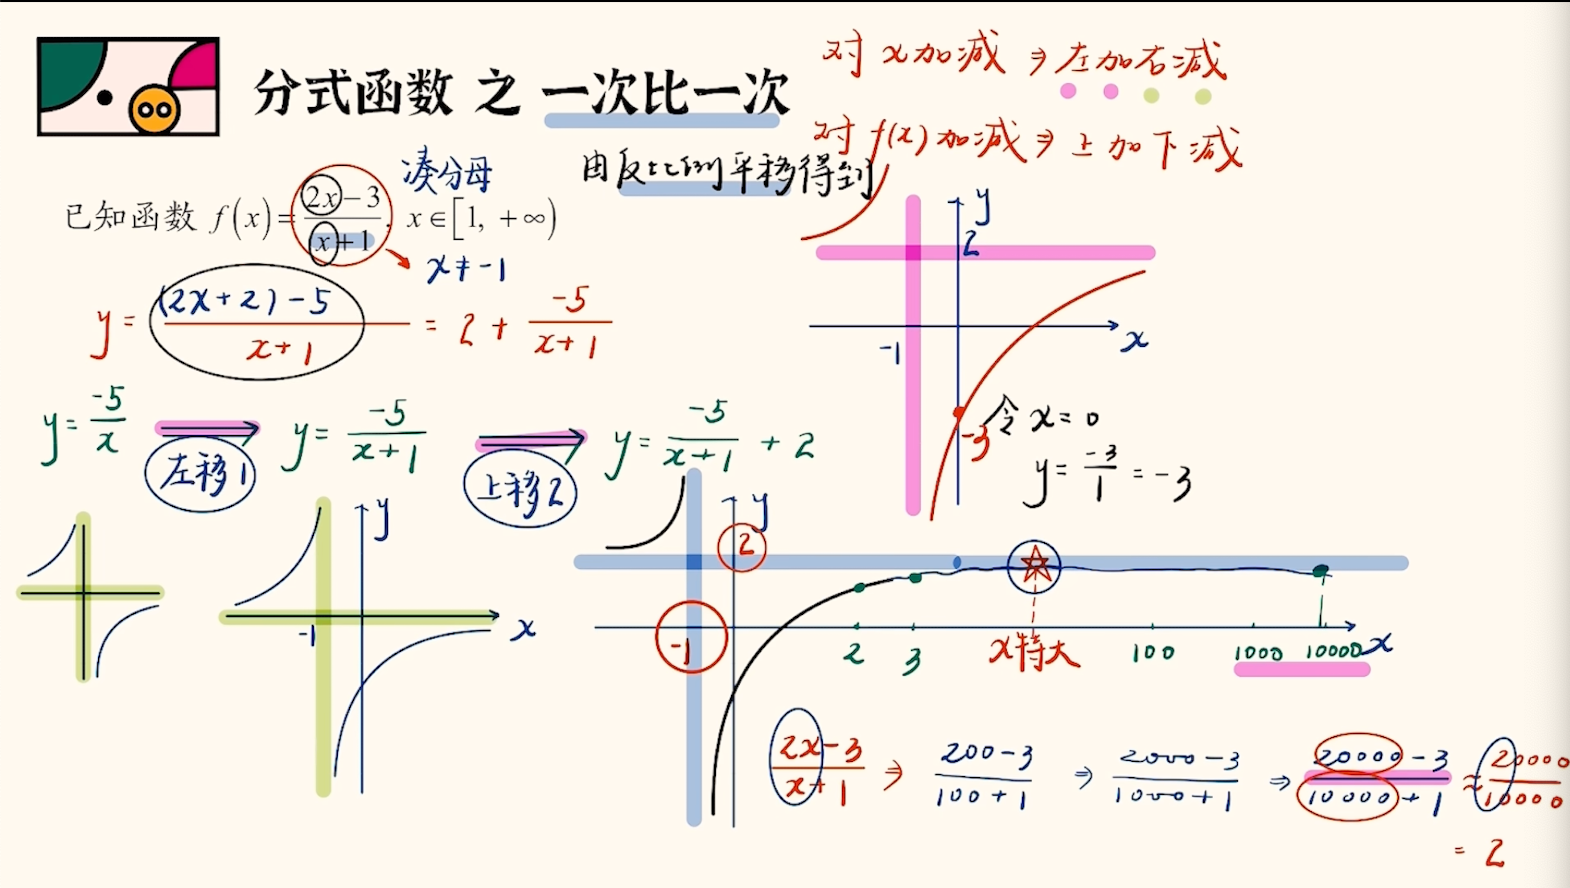 分式函数 之 一次比一次
对 x 加减 ⇒ 左加右减
对 f(x) 加减 ⇒ 上加下减
凑分母
由反比例平移得到
已知函数 f(x)=(2x-3)/(x+1), x∈[1, +∞)
x≠-1
y = ((2x+2)-5)/(x+1) = 2 + (-5)/(x+1)
y
2
-1
x
-3
令 x=0
y = (-3)/1 = -3
y = (-5)/x ⇒ y = (-5)/(x+1) ⇒ y = (-5)/(x+1) + 2
左移1
上移2
y
-1
x
y
2
-1
2 3 x特大 100 1000 10000 x
(2x-3)/(x+1) ⇒ (200-3)/(100+1) ⇒ (2000-3)/(1000+1) ⇒ (20000-3)/(10000+1) ≈ 20000/10000
= 2